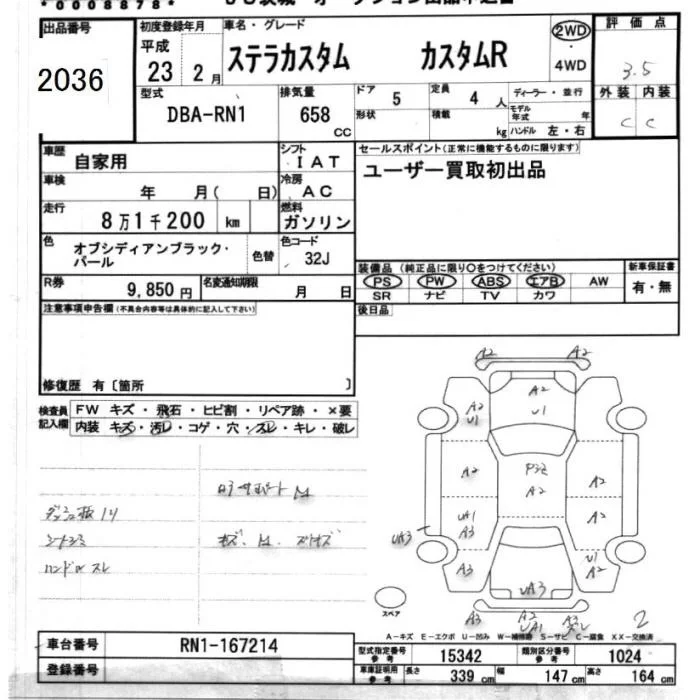 *0008878*
出品番号
2036
初度登録年月
平成
23年 2月
車名・グレード
ステラカスタム カスタムR
2WD
・
4WD
評価点
3.5
外装 内装
C C
型式
DBA-RN1
排気量
658 CC
ドア 5
形状
定員 4人
積載 kg
ディーラー・並行
モデル年式 年
ハンドル 左・右
車歴
自家用
シフト
IAT
車検
年 月( 日)
冷房
AC
走行
8万1千200 km
燃料
ガソリン
色
オブシディアンブラック・パール
色替
色コード
32J
セールスポイント(正常に機能するものに限ります)
ユーザー買取初出品
R券
9,850円
名変通知期限
月 日
装備品(純正品に限り○をつけてください)
PS PW ABS エアB AW
SR ナビ TV カワ
新車保証書
有・無
後日品
注意事項申告欄(不具合内容等は具体的に記入して下さい)
修復歴 有〔箇所 〕
検査員記入欄
FW キズ・飛石・ヒビ割・リペア跡・×要
内装 キズ・汚レ・コゲ・穴・スレ・キレ・破レ
ロアサポートM
シートシミ
ハンドルスレ
A2 A2
A2
U1
A2
U1
A2
P3E
A2
A2
UA1
A3
A2
UA3
A3
U1
A2
UA3
A3
A2
UA1
A3
スレ
2
スペア
A-キズ E-エクボ U-凹み W-補修跡 S-サビ C-腐食 XX-交換済
車台番号
RN1-167214
登録番号
型式指定番号 参考
15342
類別区分番号 参考
1024
車庫証明用 参考
長さ 339 cm
幅 147 cm
高さ 164 cm